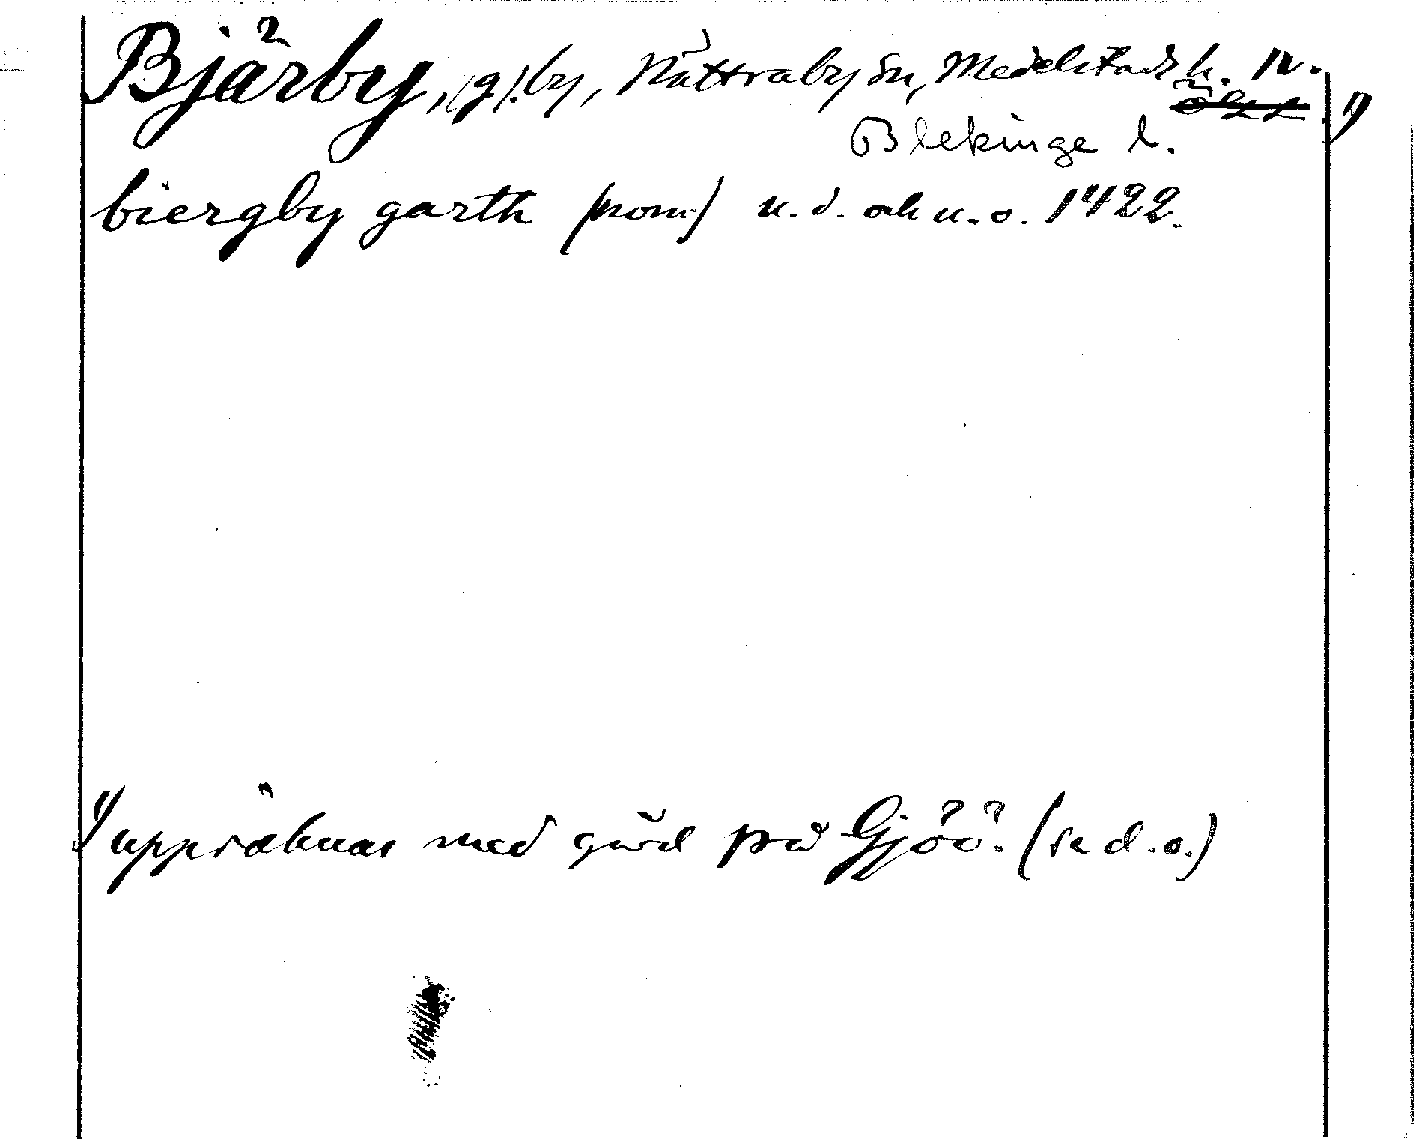 Bjärby, (g).by, Nättraby sn, Medelstads h. N. 1)
Blekinge l.
biergby garth (nom.) u. d. och u. o. 1422.
1) uppräknas med gård på Gjöö. (se d. o.)